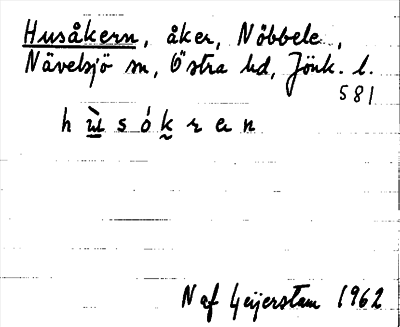 Husåkern, åker, Nöbbele,
Nävelsjö sn, Östra hd, Jönk. l.
581
h ù s ó k r e n
N af Geijerstam 1962